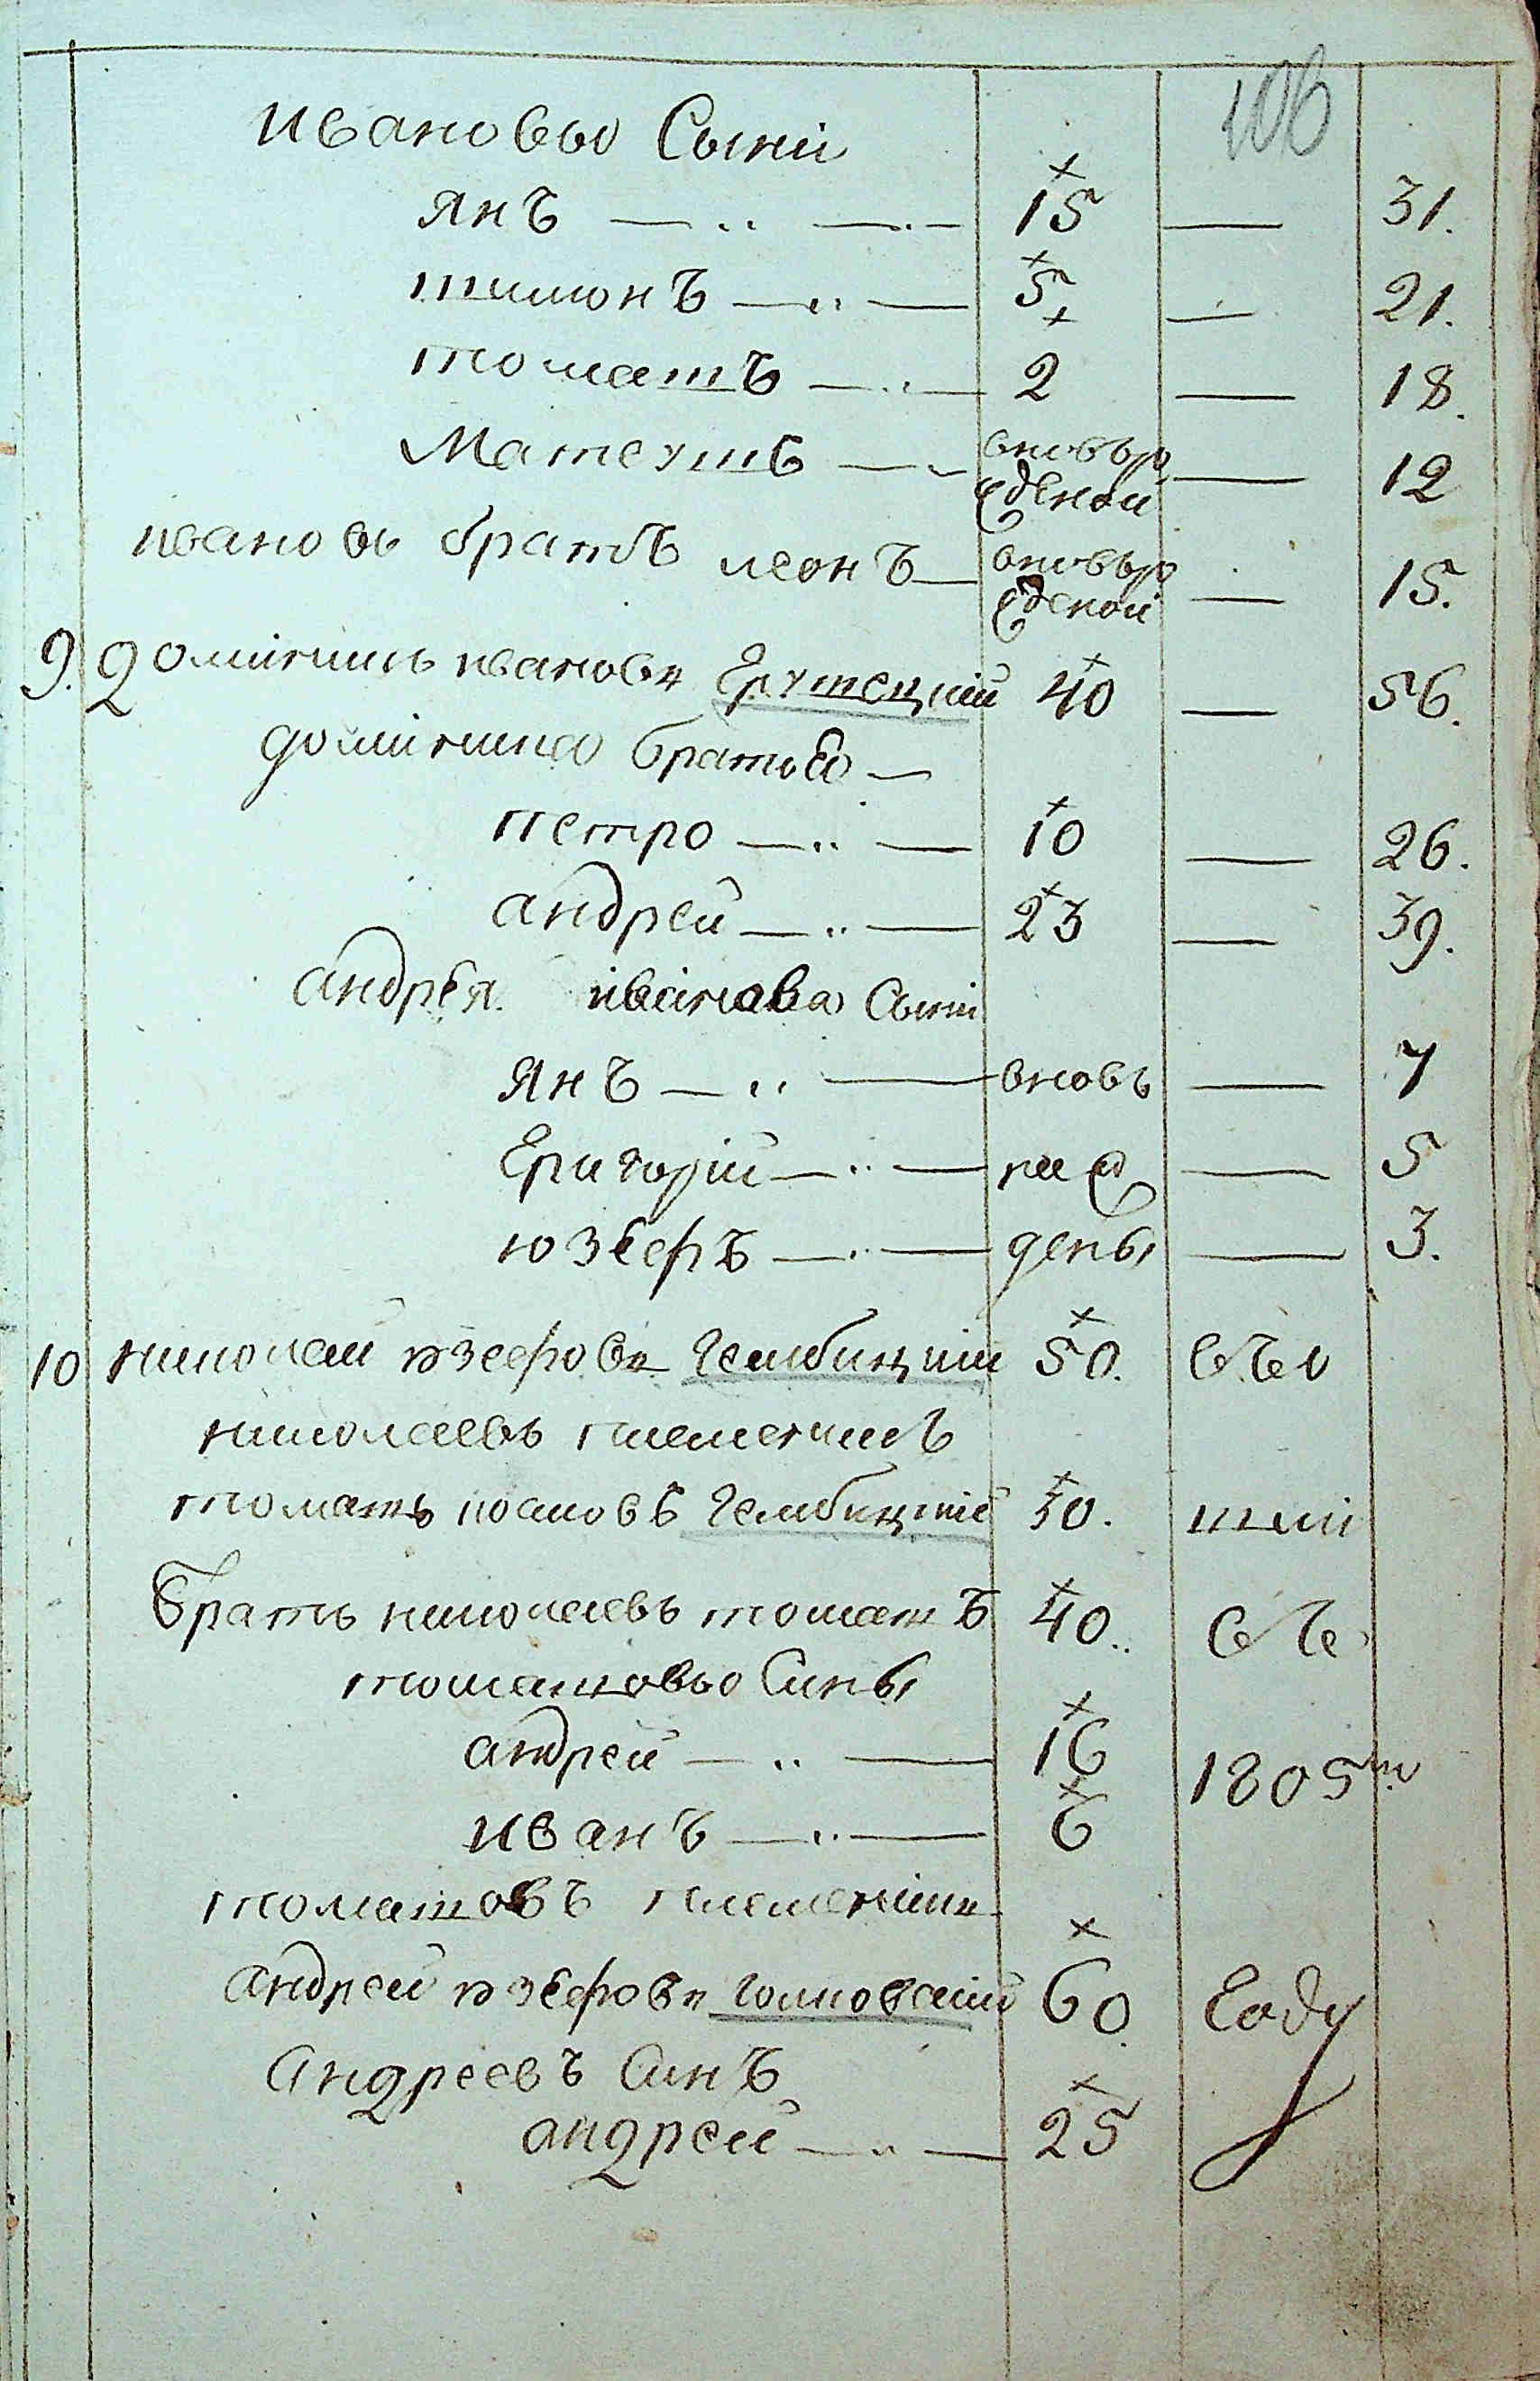 106
Ивановы Сыни
Янъ 15 — 31.
шимонъ 5 — 21.
томашъ 2 — 18.
Матеушъ вновь рожденой — 12
ивановъ братъ леонъ вновь рожденой — 15.
9. Доминикъ ивановъ Грушецкий 40 — 56.
доминика братья
петро 10 — 26.
андрей 23 — 39.
андрея иванова Сыни
Янъ вновь — 7
Григорий рож — 5
юзефъ дены — 3.
10 николай юзефовъ Гембицкий 50. бѣж
николаевъ племеникъ
томашъ Гембицкий 30.
братъ николаевъ томашъ 40..
томашовы Сины
андрей 16 1805го
иванъ 6
томашовъ племеникъ
андрей юзефовъ 60. Году
Андреевъ Синъ
андрей 25